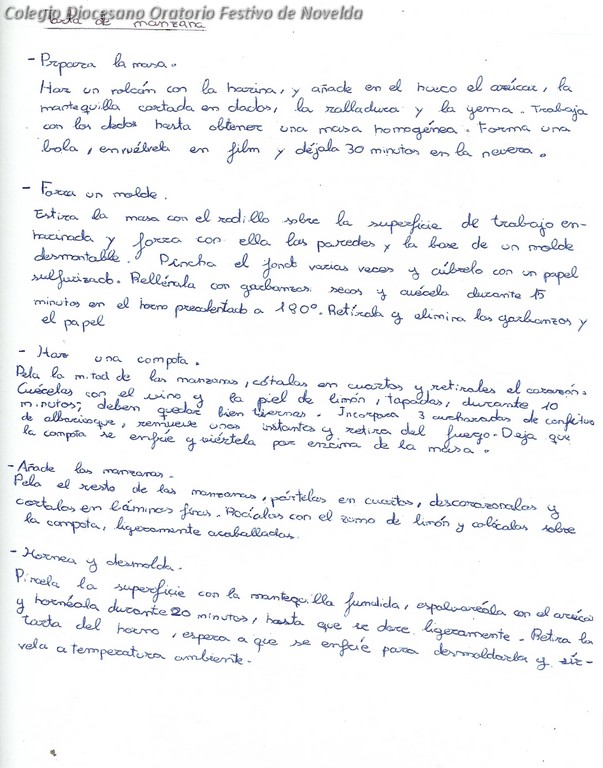 Colegio Diocesano Oratorio Festivo de Novelda
Tarta de manzana
- Prpara la masa.
Haz un volcán con la harina, y añade en el hueco el azúcar, la
mantequilla cortada en dados, la ralladura y la yema. Trabaja
con los dedos hasta obtener una masa homogénea. Forma una
bola, envuélvela en film y déjala 30 minutos en la nevera.
- Forra un molde.
Estira la masa con el rodillo sobre la superficie de trabajo en-
harinada y forra con ella las paredes y la base de un molde
desmontable. Pincha el fondo varias veces y cúbrelo con un papel
sulfurizado. Rellénala con garbanzos secos y cuécela durante 15
minutos en el horno precalentado a 180º. Retírala y elimina los garbanzos y
el papel
- Haz una compota.
Pela la mitad de las manzanas, córtalas en cuartos y retirales el corazón.
Cuécelas con el vino y la piel de limón, tapadas, durante 10
minutos; deben quedar bien tiernas. Incorpora 3 cucharadas de confitura
de albaricoque, remueve unos instantes y retira del fuego. Deja que
la compota se enfríe y viértela por encima de la masa.
- Añade las manzanas.
Pela el resto de las manzanas, pártelas en cuartos, descorazonalas y
cortalas en láminas finas. Rocíalas con el zumo de limón y colócalas sobre
la compota, ligeramente acaballadas.
- Hornea y desmolda.
Pincela la superficie con la mantequilla fundida, espolvoréala con el azúcar
y hornéala durante 20 minutos, hasta que se dore ligeramente. Retira la
tarta del horno, espera a que se enfríe para desmoldarla y sír-
vela a temperatura ambiente.